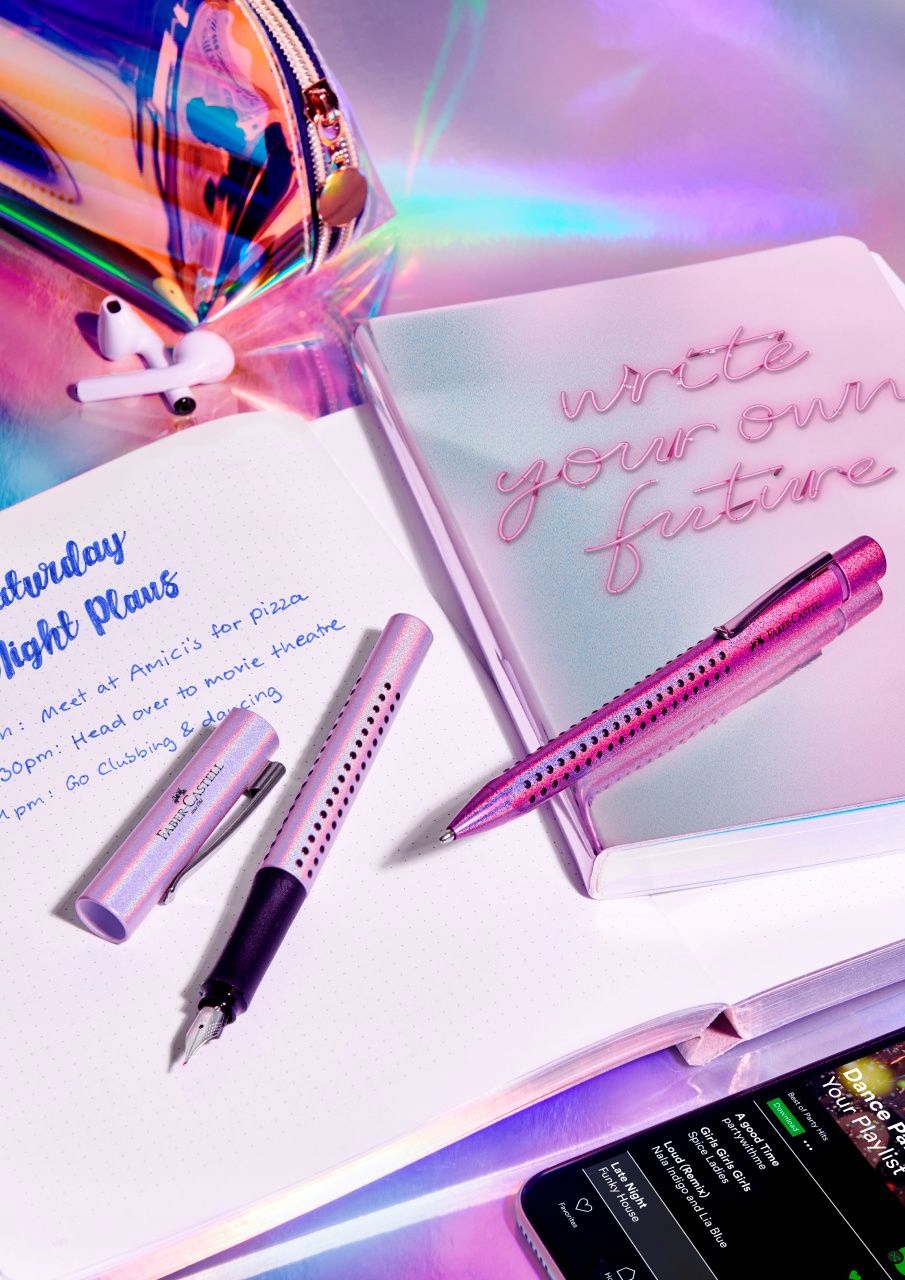 write
your own
future
aturday
Night Plans
m: Meet at Amici's for pizza
30pm: Head over to movie theatre
pm: Go Clubbing & dancing
FABER-CASTELL
since 1761
FABER-CASTELL
Dance Pa
Your Playlist
Best of Party Hits
Download
A good Time
partywithme
Girls Girls Girls
Spice Ladies
Loud (Remix)
Nala Indigo and Lia Blue
Late Night
Funky House
Favorites
Ho